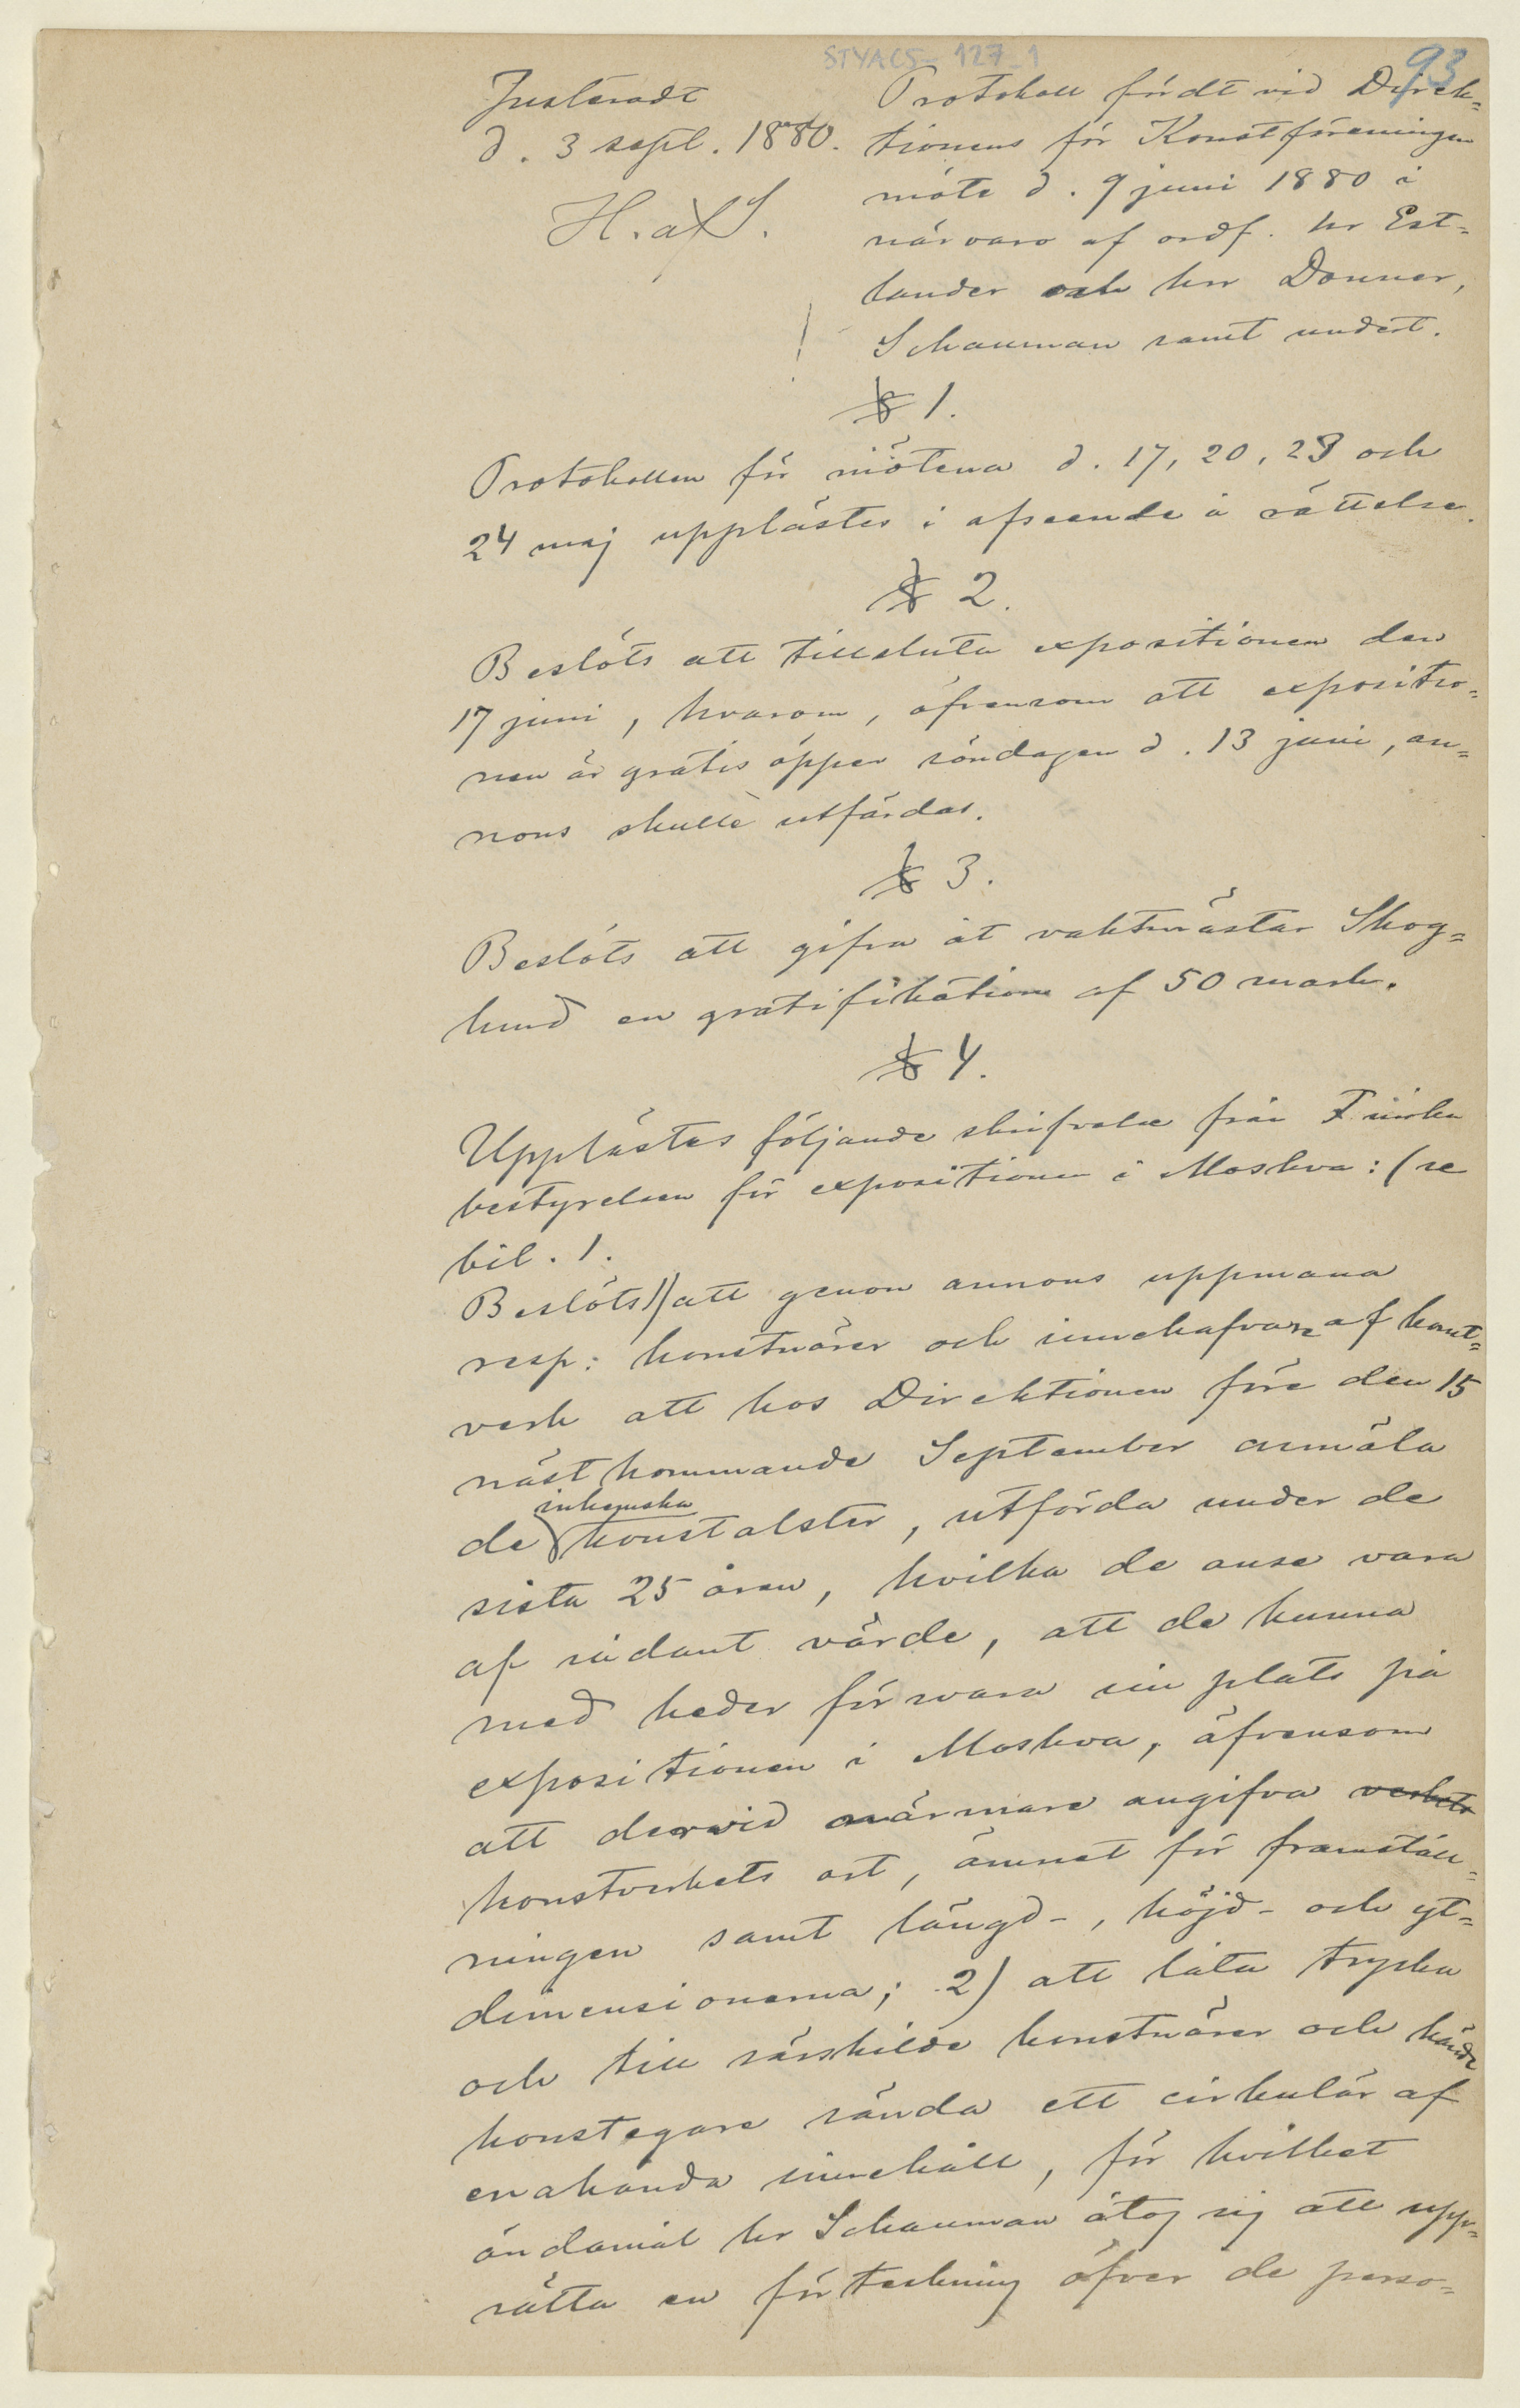 STYACS_127_1
93
Justeradt
d. 3 sept. 1880.
H. af S.
Protokoll fördt vid Direk=
tionens för Konstföreningen
möte d. 9 juni 1880 i
närvaro af ordf. hr Est=
lander och hrr Donner,
Schauman samt undert.
§ 1.
Protokollen för mötena d. 17, 20, 23 och
24 maj upplästes i afseende å rättelse.
§ 2.
Beslöts att tillsluta expositionen den
17 juni, hvarom, äfvensom att expositio=
nen är gratis öppen söndagen d. 13 juni, an=
nons skulle utfärdas.
§ 3.
Beslöts att gifva åt vaktmästar Skog=
lund en gratifikation af 50 mark.
§ 4.
Upplästes följande skrifvelse från Finska
bestyrelsen för expositionen i Moskva: (se
bil. 1.
Beslöts 1) att genom annons uppmana
resp: konstnärer och innehafvare af konst=
verk att hos Direktionen före den 15
nästkommande September anmäla
de inhemska konstalster, utförda under de
sista 25 åren, hvilka de anse vara
af sådant värde, att de kunna
med heder försvara sin plats på
expositionen i Moskva, äfvensom
att dervid närmare angifva verkets
konstverkets art, ämnet för framställ=
ningen samt längd-, höjd- och yt=
dimensionerna; 2) att låta trycka
och till särskilde konstnärer och kände
konstegare sända ett cirkulär af
enahanda innehåll, för hvilket
ändamål hr Schauman åtog sig att upp=
rätta en förteckning öfver de perso=